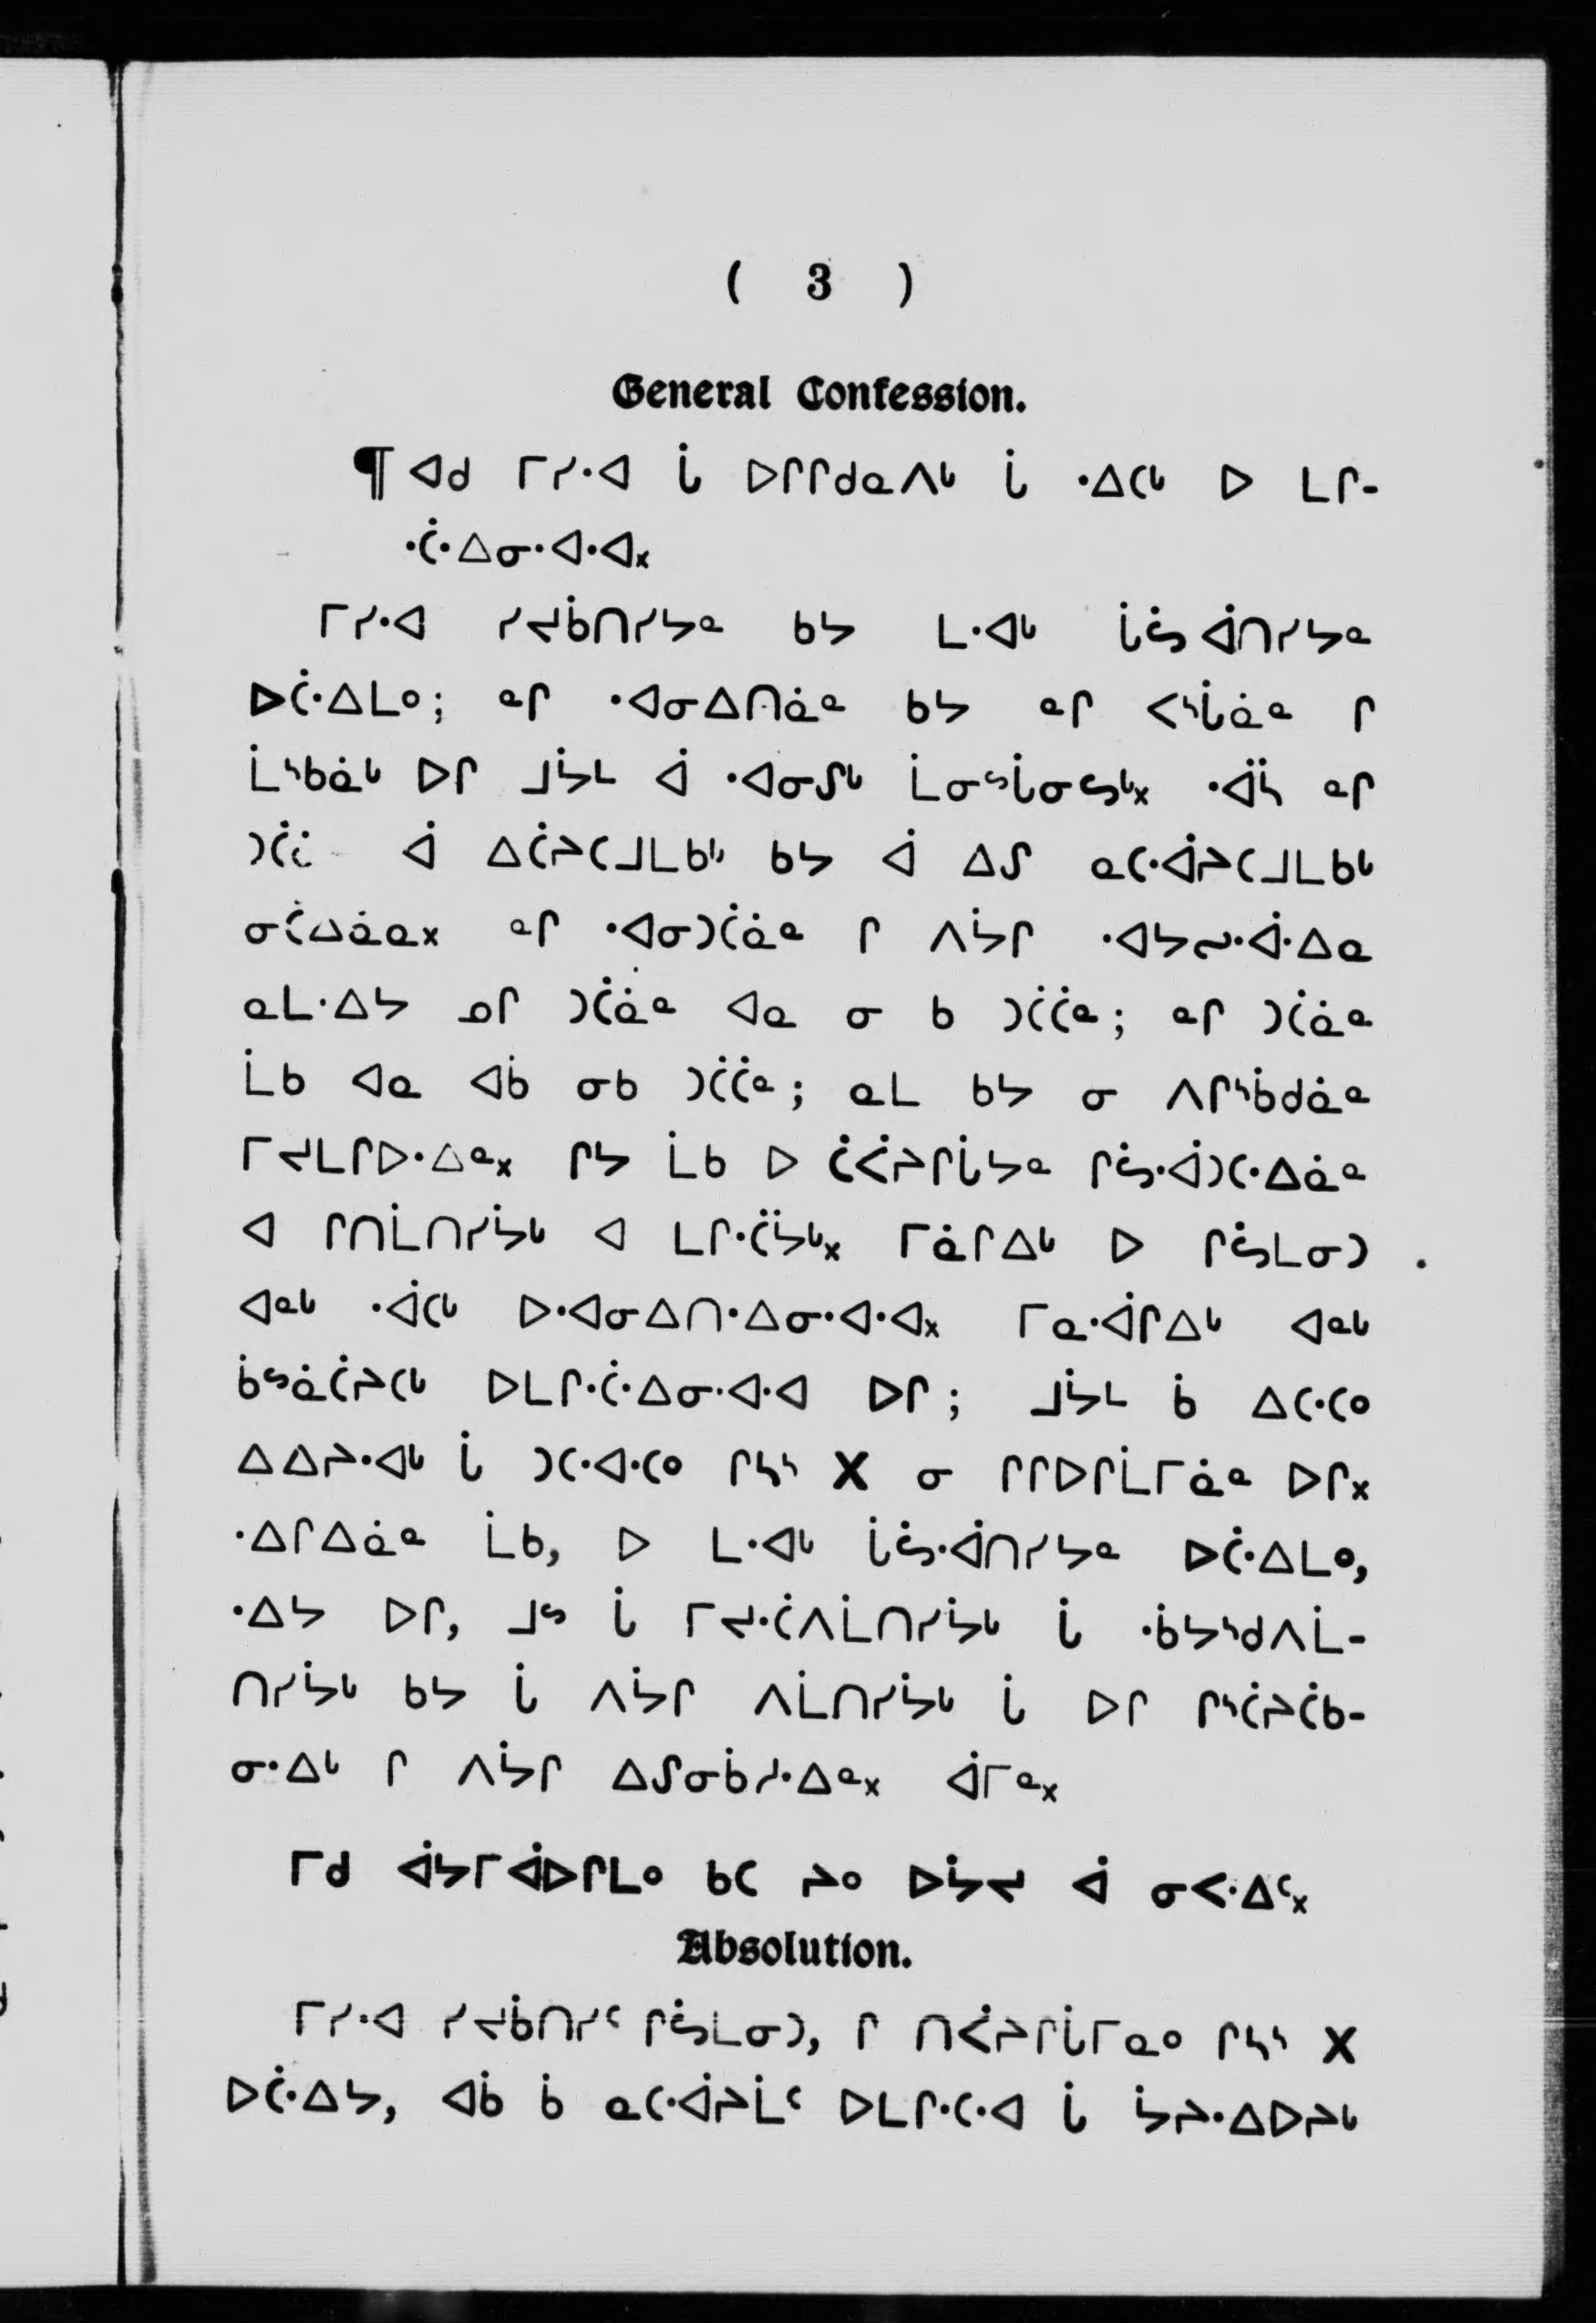 ( 3 )
General Confession.
¶ ᐊᑯ ᒥᓯᐧᐊ ᒑ ᐅᒋᒋᑯᓇᐱᒡ ᒑ ᐧᐃᑕᒡ ᐅ ᒪᒋ-
ᐧᑖᐧᐃᓂᐧᐊᐧᐊ᙮
ᒥᓯᐧᐊ ᓯᔪᑳᑎᓯᔭᓐ ᑲᔭ ᒪᐧᐊᒡ ᒑᔖᐋᑎᓯᔭᓐ
ᐅᑖᐧᐃᒪᐤ; ᓐᒋ ᐧᐊᓂᐃᑎᓈᓐ ᑲᔭ ᓐᒋ ᐸᔅᒑᓈᓐ ᒋ
ᒫᔅᑲᓈᒡ ᐅᒋ ᒧᔮᒻ ᐋ ᐧᐊᓂᔑᒡ ᒫᓂᔥᒑᓂᔕᒡ᙮ ᐧᐋᓴ ᓐᒋ
ᑐᑖ ᐋ ᐃᑖᔨᑕᒧᒪᑲᒡ ᑲᔭ ᐋ ᐃᔑ ᓇᑕᐧᐋᔨᑕᒧᒪᑲᒡ
ᓂᑖᐃᓈᓇ᙮ ᓐᒋ ᐧᐊᓂᑐᑖᓈᓐ ᒋ ᐱᔮᒋ ᐧᐊᔭᓱᐧᐋᐧᐃᓇ
ᓇᒪᐧᐃᔭ ᓄᒋ ᑐᑖᓈᓐ ᐊᓇ ᓂ ᑲ ᑐᑖᑖᓐ; ᓐᒋ ᑐᑖᓈᓐ
ᒫᑲ ᐊᓇ ᐊᑳ ᓂᑲ ᑐᑖᑖᓐ; ᓇᒪ ᑲᔭ ᓂ ᐱᒋᔅᑳᑯᓈᓐ
ᒥᔪᒪᒋᐅᐧᐃᓐ᙮ ᒋᔭ ᒫᑲ ᐅ ᑖᐹᔨᒋᒑᔭᓐ ᒋᔖᐧᐋᑐᑕᐧᐃᓈᓐ
ᐊ ᒋᑎᒫᑎᓯᔮᒡ ᐊ ᒪᒋᐧᑖᔮᒡ᙮ ᒥᓈᒋᐃᒡ ᐅ ᒋᔖᒪᓂᑐ
ᐊᓐᒡ ᐧᐋᑕᒡ ᐅᐧᐊᓂᐃᑎᐧᐃᓂᐧᐊᐧᐊ᙮ ᒥᓇᐧᐋᒋᐃᒡ ᐊᓐᒡ
ᑳᔥᓈᑖᔨᑕᒡ ᐅᒪᒋᐧᑖᐧᐃᓂᐧᐊᐧᐊ ᐅᒋ; ᒧᔮᒻ ᑳ ᐃᑕᐧᑕᐤ
ᐃᐃᔨᐧᐊᒡ ᒑ ᑐᑕᐧᐊᐧᑕᐤ ᒋᓴᔅ X ᓂ ᒋᒋᐅᒋᒫᒥᓈᓐ ᐅᒋ᙮
ᐧᐃᒋᐃᓈᓐ ᒫᑲ, ᐅ ᒪᐧᐊᒡ ᒑᔖᐧᐋᑎᓯᔭᓐ ᐅᑖᐧᐃᒪᐤ,
ᐧᐃᔭ ᐅᒋ, ᒧᔥ ᒑ ᒥᔪᐧᑖᐱᒫᑎᓯᔮᒡ ᒑ ᐧᑳᔭᔅᑯᐱᒫ-
ᑎᓯᔮᒡ ᑲᔭ ᒑ ᐱᔮᒋ ᐱᒫᑎᓯᔮᒡ ᒑ ᐅᒋ ᒋᔅᑖᔨᑖᑲ-
ᓂᐧᐃᒡ ᒋ ᐱᔮᒋ ᐃᔑᓂᑳᓱᐧᐃᓐ᙮ ᐋᒥᓐ᙮
ᒥᑯ ᐋᔭᒥᐋᐅᒋᒪᐤ ᑲᑕ ᔨᐤ ᐅᔮᔪ ᐋ ᓂᐸᐧᐃᑦ᙮
Absolution.
ᒥᓯᐧᐊ ᓯᔪᑳᑎᓯᑦ ᒋᔖᒪᓂᑐ, ᒋ ᑎᐹᔨᒋᒑᒥᓇᐤ ᒋᓴᔅ X
ᐅᑖᐧᐃᔭ, ᐊᑳ ᑳ ᓇᑕᐧᐋᔨᒫᑦ ᐅᒪᒋᐧᑕᐧᐊ ᒑ ᔮᔨᐧᐃᐅᔨᒡ